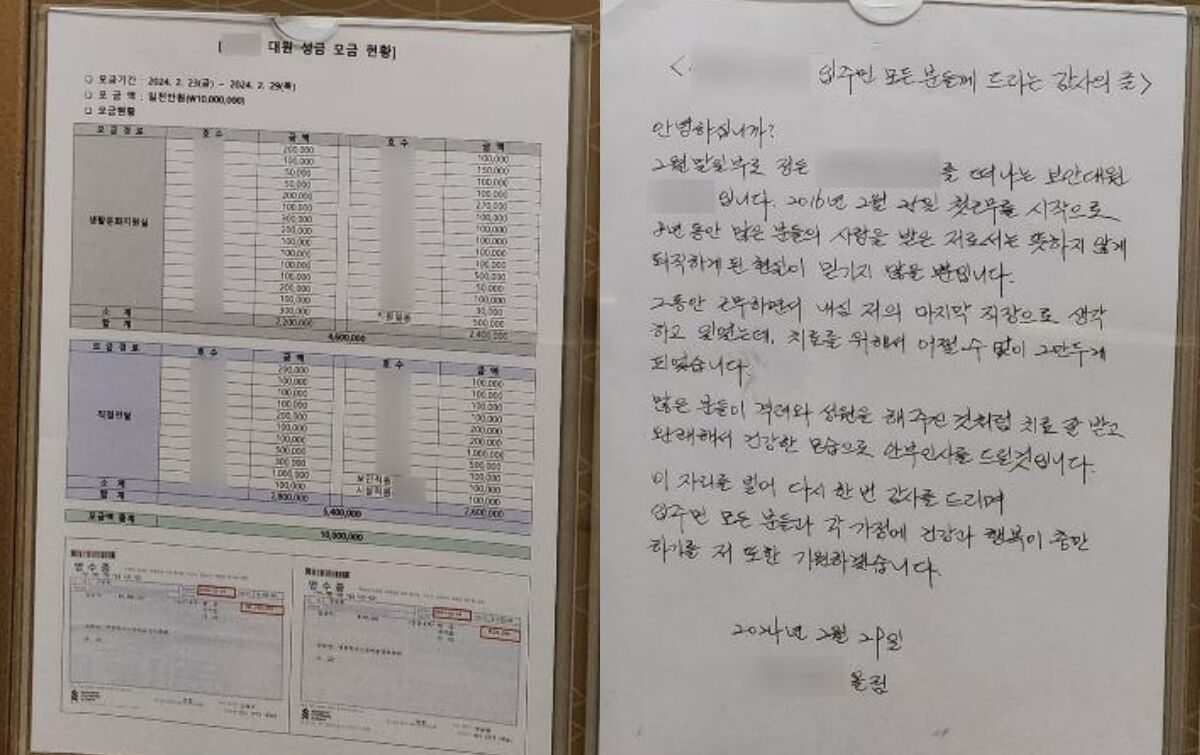 [ 대원 성금 모금 현황]
□ 모금기간 : 2024. 2. 23(금) - 2024. 2. 29(목)
□ 모 금 액 : 일천만원(₩10,000,000)
□ 모금현황
모금경로 호 수 금 액 호 수 금 액
생활문화지원실
200,000 100,000
100,000 150,000
50,000 100,000
50,000 100,000
200,000 270,000
100,000 100,000
300,000 100,000
200,000 100,000
100,000 100,000
100,000 100,000
100,000 500,000
200,000 50,000
100,000 100,000
300,000 30,000
소 계 2,200,000 2,400,000
합 계 4,600,000
모금경로 호 수 금 액 호 수 금 액
직접전달
200,000 100,000
100,000 100,000
100,000 100,000
100,000 100,000
200,000 200,000
100,000 200,000
100,000 1,000,000
500,000 500,000
300,000 보안직원 100,000
1,000,000 시설직원 100,000
100,000 100,000
소 계 2,800,000 2,600,000
합 계 5,400,000
모금액 총계 10,000,000
영수증
영수증
< 입주민 모든 분들께 드리는 감사의 글>
안녕하십니까?
2월 말일부로 정든 를 떠나는 보안대원
입니다. 2016년 2월 25일 첫근무를 시작으로
8년 동안 많은 분들의 사랑을 받은 저로서는 뜻하지 않게
퇴직하게 된 현실이 믿기지 않을 뿐입니다.
그동안 근무하면서 내심 저의 마지막 직장으로 생각
하고 있었는데, 치료를 위해서 어쩔 수 없이 그만두게
되었습니다.
많은 분들이 격려와 성원을 해 주신 것처럼 치료 잘 받고
완쾌해서 건강한 모습으로 안부인사를 드릴것입니다.
이 자리를 빌어 다시 한 번 감사를 드리며
입주민 모든 분들과 각 가정에 건강과 행복이 충만
하기를 저 또한 기원하겠습니다.
2024년 2월 29일
올림